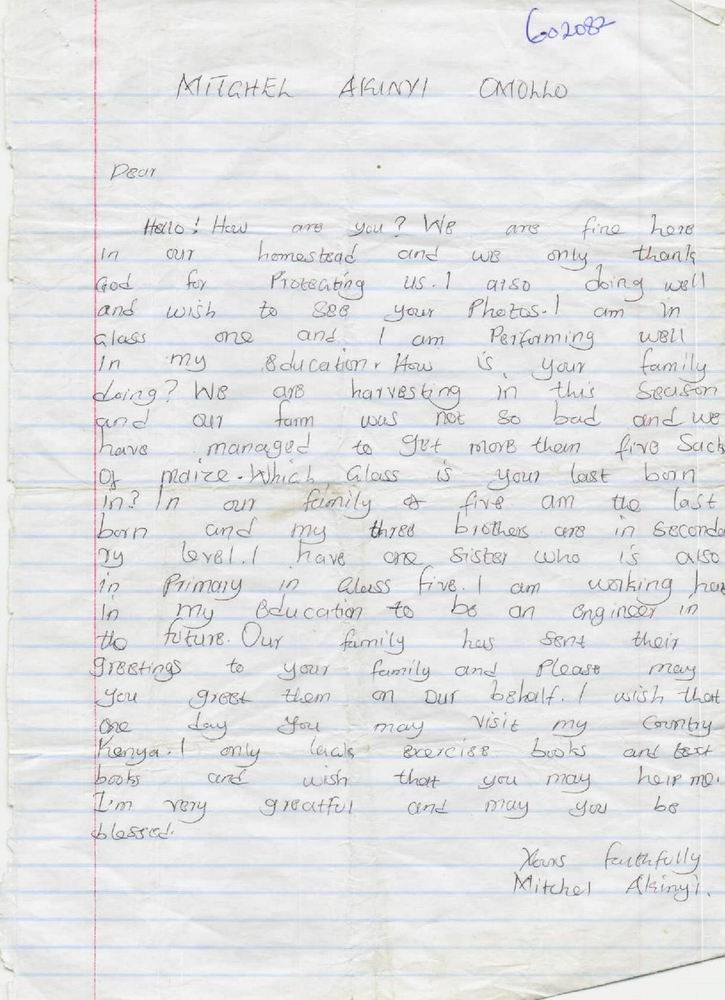 602082
MITCHEL AKINYI OMOLLO
Dear
Hello! How are you? We are fine here
in our homestead and we only thank
God for Protecting us. I also doing well
and wish to see your Photos. I am in
Class one and I am Performing well
in my Education. How is your family
doing? We are harvesting in this Season
and our farm was not so bad and we
have managed to get more than five Sack
of maize. Which Class is your last born
in? In our family of five am the last
born and my three brothers are in Seconda
ry level. I have one sister who is also
in Primary in Class five. I am working har
in my Education to be an engineer in
the future. Our family has sent their
greetings to your family and Please may
you greet them on our behalf. I wish that
one day you may visit my Country
Kenya. I only lack exercise books and text
books and wish that you may help me.
I'm very greatful and may you be
blessed.
Yours faithfully
Mitchel Akinyi.